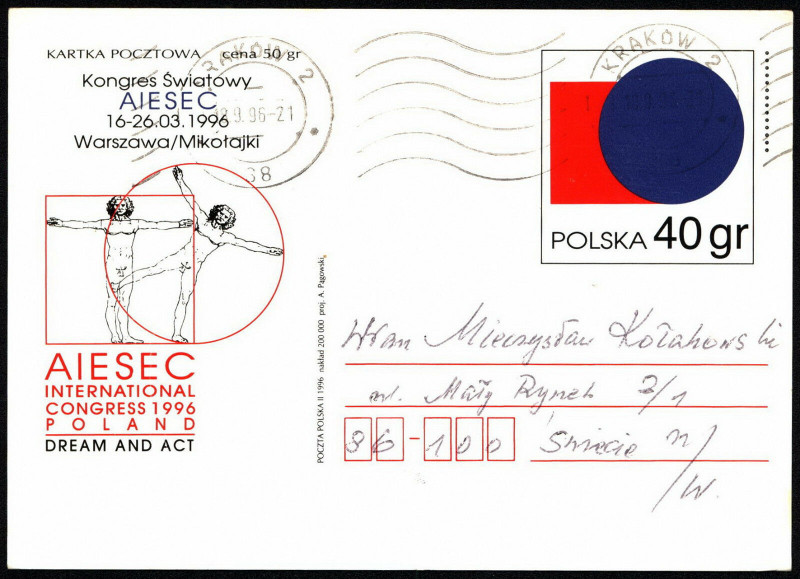 KARTKA POCZTOWA cena 50 gr
Kongres Światowy
AIESEC
16-26.03.1996
Warszawa/Mikołajki
KRAKÓW 2
9.96-21
68
KRAKÓW 2
POLSKA 40 gr
AIESEC
INTERNATIONAL
CONGRESS 1996
POLAND
DREAM AND ACT
POCZTA POLSKA II 1996 nakład 200 000 proj. A. Pągowski
Mieczysław Kołakowski
ul. Mały Rynek 2/1
86-100 Świecie n/
/W.